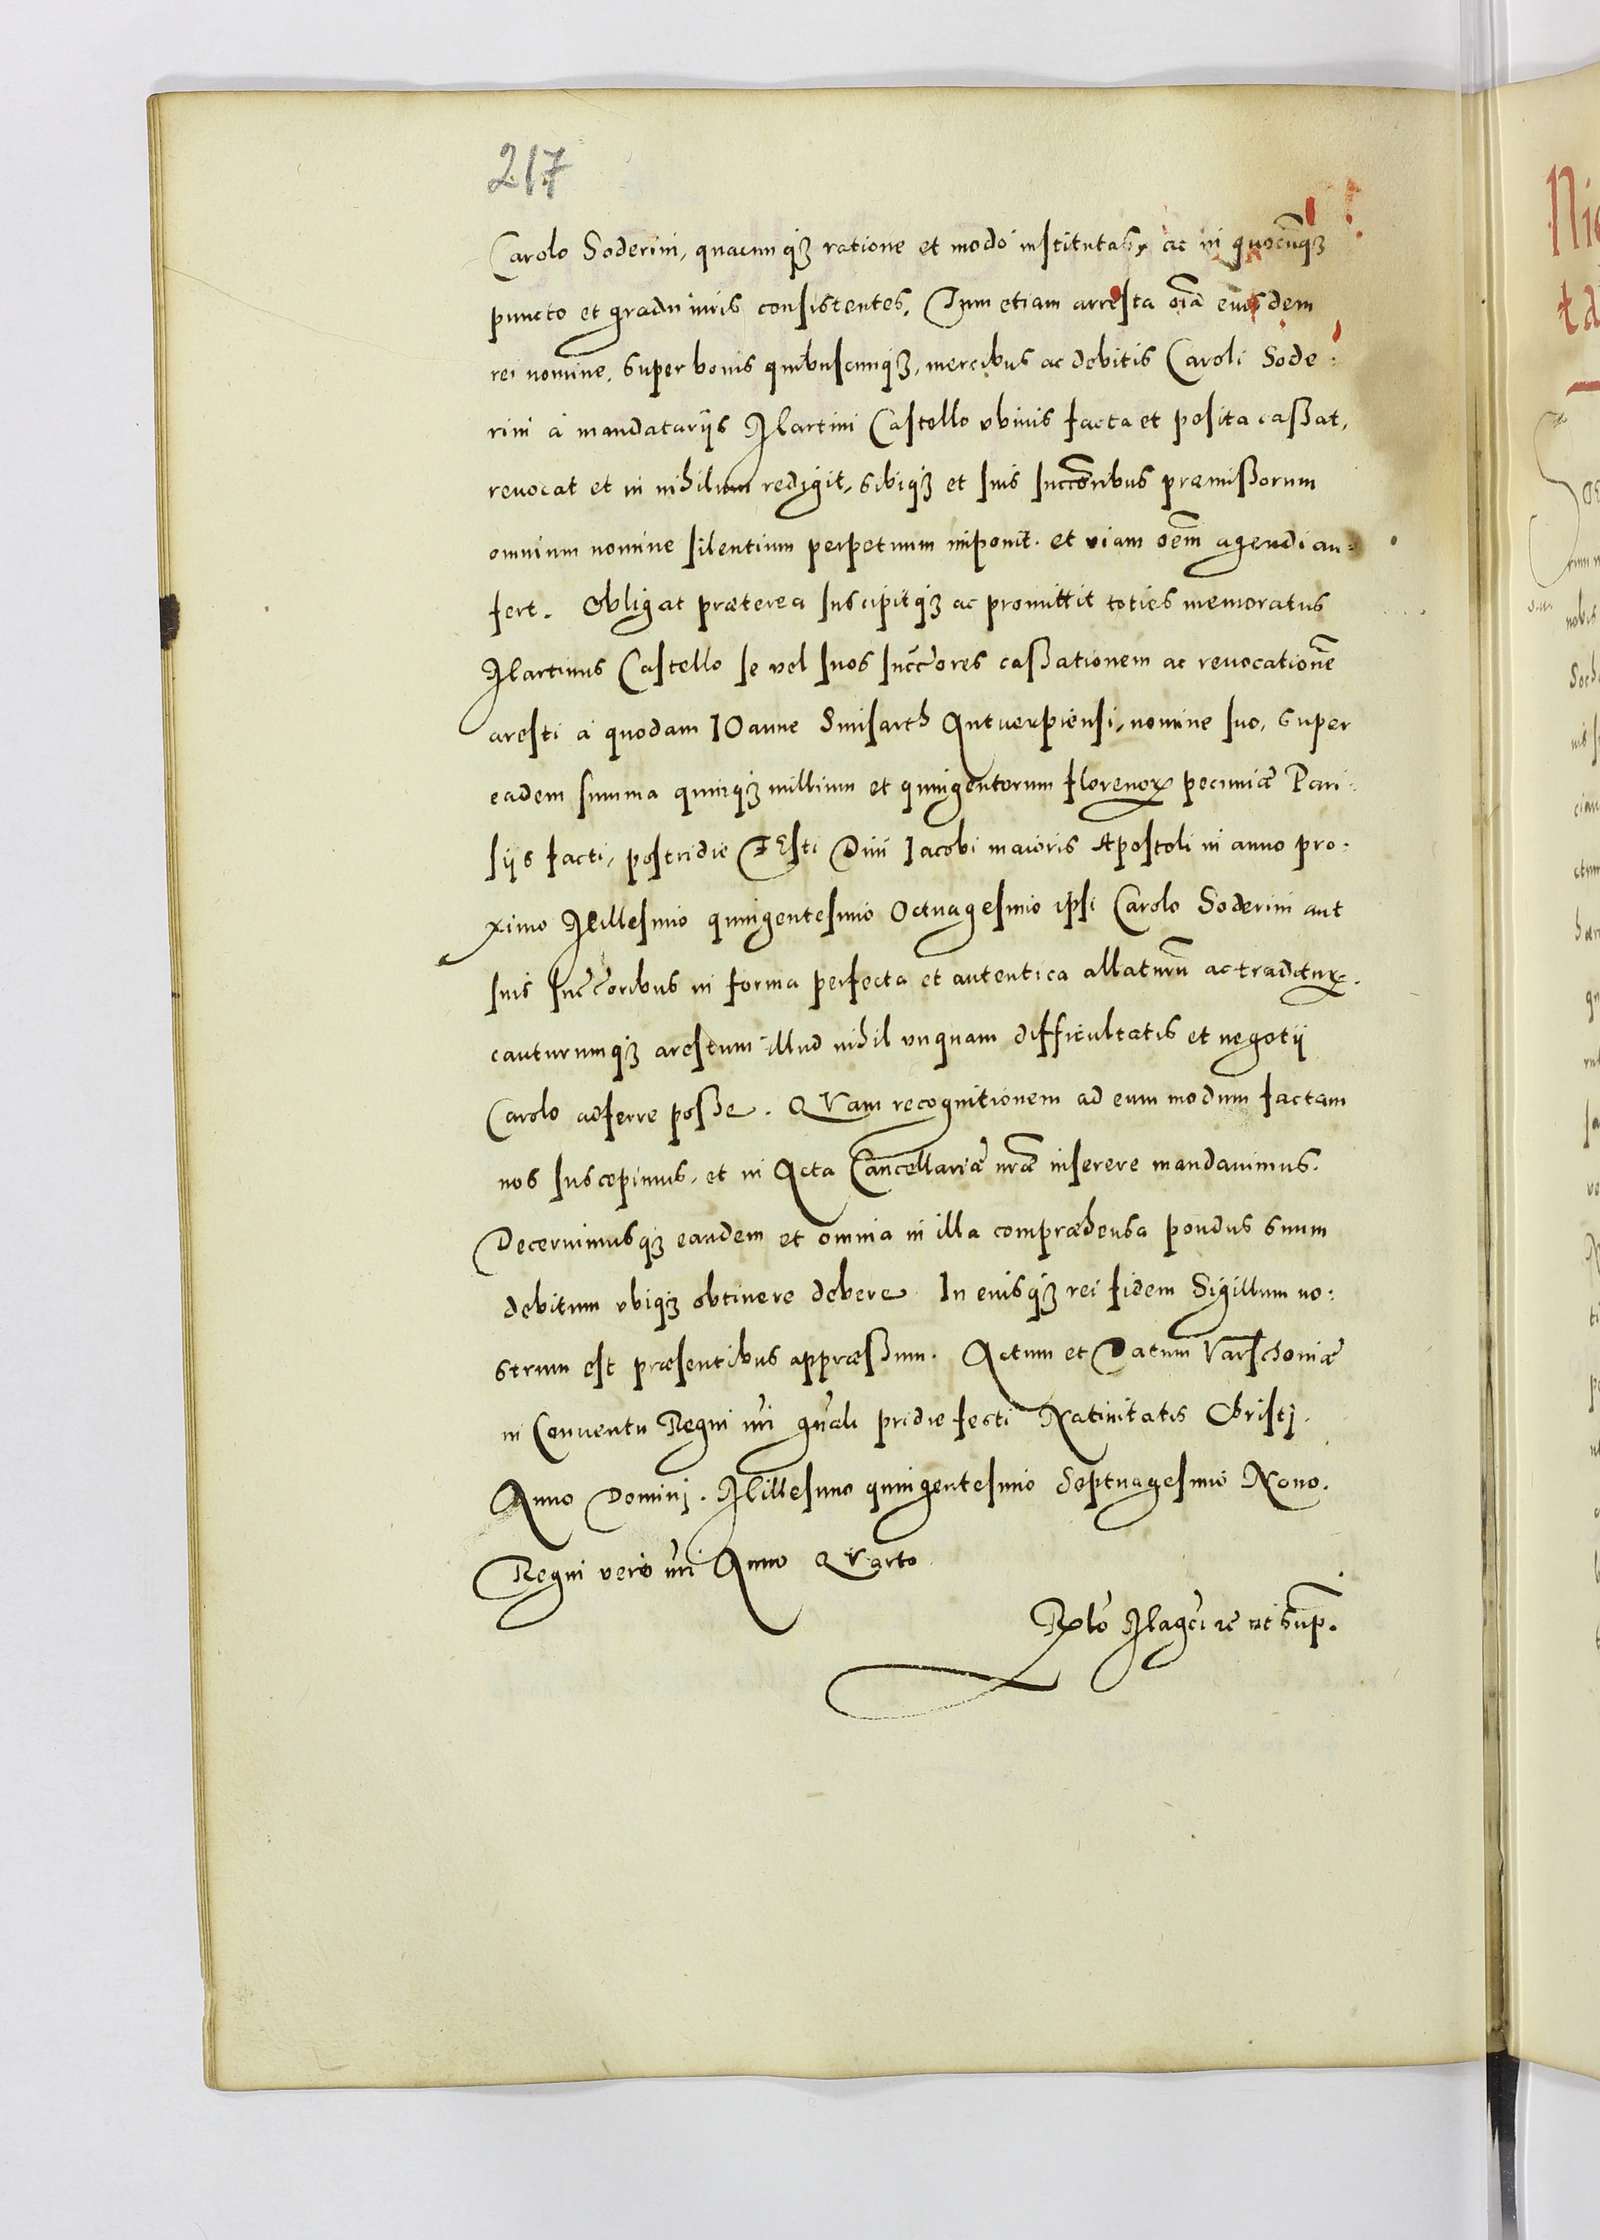 217
Carolo Soderini, quacunqꝫ ratione et modo institutas, ac in quocūqꝫ
puncto et gradu iuris consistentes, Tum etiam arresta oīa eiusdem
rei nomine, super bonis quibuscunqꝫ, mercibus ac debitis Caroli Sode:
rini à mandatarijs Martini Castello ubiuis facta et posita cassat,
reuocat et in nihilum redigit, sibiqꝫ et suis succ̄oribus præmissorum
omnium nomine silentium perpetuum imponit. et viam oēm agendi au:
fert. Obligat præterea suscipitqꝫ ac promittit toties memoratus
Martinus Castello se vel suos succ̄ores cassationem ac reuocationē
aresti à quodam IOanne Smisarth Antuerpiensi, nomine suo, super
eadem summa quinqꝫ millium et quingentorum florenoꝝ pecuniæ Pari:
sijs facti, postridie FEsti Diui Iacobi maioris Apostoli in anno pro:
ximo Millesimo quingentesimo Octuagesimo ipsi Carolo Soderini aut
suis succ̄oribus in forma perfecta et autentica allaturū ac traditurꝝ.
cauturumqꝫ arestum illud nihil unquam difficultatis et negotij
Carolo adferre posse. QVam recognitionem ad eum modum factam
nos suscepimus, et in Acta Cancellariæ nr̄æ inserere mandauimus.
Decernimusqꝫ eandem et omnia in illa compræhensa pondus suum
debitum ubiqꝫ obtinere debere. In cuiusqꝫ rei fidem Sigillum no:
strum est præsentibus appræssum. Actum et Datum Varschouiæ
in Conuentu Regni nr̄i gn̄ali pridie festi Natiuitatis Christj.
Anno Dominj. Millesimo quingentesimo Septuagesimo Nono.
Regni verò nr̄i Anno QVarto.
Rl̄o Mag̃ci ꝛc ut sup̄.
Nic